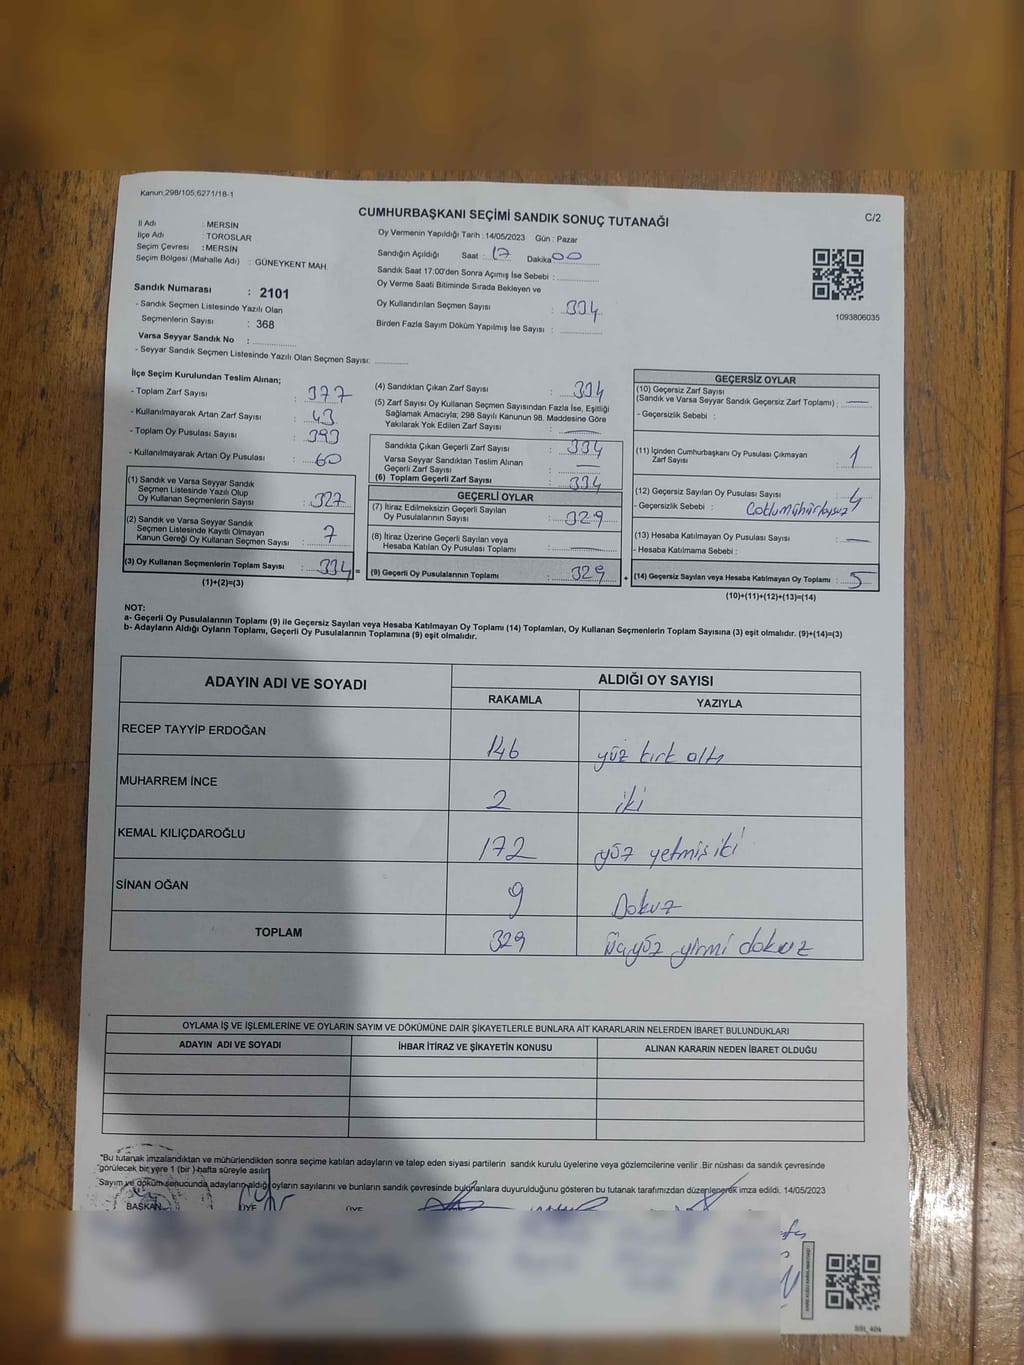 Kanun:298/105,6271/18-1
CUMHURBAŞKANI SEÇİMİ SANDIK SONUÇ TUTANAĞI
C/2
İl Adı : MERSİN
İlçe Adı : TOROSLAR
Seçim Çevresi : MERSİN
Seçim Bölgesi (Mahalle Adı) : GÜNEYKENT MAH.
Sandık Numarası : 2101
- Sandık Seçmen Listesinde Yazılı Olan
Seçmenlerin Sayısı : 368
Varsa Seyyar Sandık No :
- Seyyar Sandık Seçmen Listesinde Yazılı Olan Seçmen Sayısı:
Oy Vermenin Yapıldığı Tarih : 14/05/2023 Gün : Pazar
Sandığın Açıldığı Saat : 17 Dakika 00
Sandık Saat 17:00'den Sonra Açımış İse Sebebi :
Oy Verme Saati Bitiminde Sırada Bekleyen ve
Oy Kullandırılan Seçmen Sayısı : 334
Birden Fazla Sayım Döküm Yapılmış İse Sayısı :
1093806035
İlçe Seçim Kurulundan Teslim Alınan;
- Toplam Zarf Sayısı : 377
- Kullanılmayarak Artan Zarf Sayısı : 43
- Toplam Oy Pusulası Sayısı : 393
- Kullanılmayarak Artan Oy Pusulası : 60
(1) Sandık ve Varsa Seyyar Sandık
Seçmen Listesinde Yazılı Olup
Oy Kullanan Seçmenlerin Sayısı : 327
(2) Sandık ve Varsa Seyyar Sandık
Seçmen Listesinde Kayıtlı Olmayan
Kanun Gereği Oy Kullanan Seçmen Sayısı : 7
(3) Oy Kullanan Seçmenlerin Toplam Sayısı : 334 =
(1)+(2)=(3)
(4) Sandıktan Çıkan Zarf Sayısı : 334
(5) Zarf Sayısı Oy Kullanan Seçmen Sayısından Fazla İse, Eşitliği
Sağlamak Amacıyla; 298 Sayılı Kanunun 98. Maddesine Göre
Yakılarak Yok Edilen Zarf Sayısı : —
Sandıkta Çıkan Geçerli Zarf Sayısı : 334
Varsa Seyyar Sandıktan Teslim Alınan
Geçerli Zarf Sayısı : —
(6) Toplam Geçerli Zarf Sayısı : 334
GEÇERLİ OYLAR
(7) İtiraz Edilmeksizin Geçerli Sayılan
Oy Pusulalarının Sayısı : 329
(8) İtiraz Üzerine Geçerli Sayılan veya
Hesaba Katılan Oy Pusulası Toplamı : —
(9) Geçerli Oy Pusulalarının Toplamı : 329 +
GEÇERSİZ OYLAR
(10) Geçersiz Zarf Sayısı
(Sandık ve Varsa Seyyar Sandık Geçersiz Zarf Toplamı) : —
- Geçersizlik Sebebi :
(11) İçinden Cumhurbaşkanı Oy Pusulası Çıkmayan
Zarf Sayısı : 1
(12) Geçersiz Sayılan Oy Pusulası Sayısı : 4
- Geçersizlik Sebebi :
(13) Hesaba Katılmayan Oy Pusulası Sayısı : —
- Hesaba Katılmama Sebebi :
(14) Geçersiz Sayılan veya Hesaba Katılmayan Oy Toplamı : 5
(10)+(11)+(12)+(13)=(14)
NOT:
a- Geçerli Oy Pusulalarının Toplamı (9) ile Geçersiz Sayılan veya Hesaba Katılmayan Oy Toplamı (14) Toplamları, Oy Kullanan Seçmenlerin Toplam Sayısına (3) eşit olmalıdır. (9)+(14)=(3)
b- Adayların Aldığı Oyların Toplamı, Geçerli Oy Pusulalarının Toplamına (9) eşit olmalıdır.
ADAYIN ADI VE SOYADI
ALDIĞI OY SAYISI
RAKAMLA YAZIYLA
RECEP TAYYİP ERDOĞAN 146 yüz kırk altı
MUHARREM İNCE 2 iki
KEMAL KILIÇDAROĞLU 172 yüz yetmiş iki
SİNAN OĞAN 9 Dokuz
TOPLAM 329 Üçyüz yirmi dokuz
OYLAMA İŞ VE İŞLEMLERİNE VE OYLARIN SAYIM VE DÖKÜMÜNE DAİR ŞİKAYETLERLE BUNLARA AİT KARARLARIN NELERDEN İBARET BULUNDUKLARI
ADAYIN ADI VE SOYADI İHBAR İTİRAZ VE ŞİKAYETİN KONUSU ALINAN KARARIN NEDEN İBARET OLDUĞU
*Bu tutanak imzalandıktan ve mühürlendikten sonra seçime katılan adayların ve talep eden siyasi partilerin sandık kurulu üyelerine veya gözlemcilerine verilir .Bir nüshası da sandık çevresinde
görülecek bir yere 1 (bir ) hafta süreyle asılır.
Sayım ve döküm sonucunda adayların aldığı oyların sayılarını ve bunların sandık çevresinde bulunanlara duyurulduğunu gösteren bu tutanak tarafımızdan düzenlenerek imza edildi. 14/05/2023
BAŞKAN ÜYE ÜYE